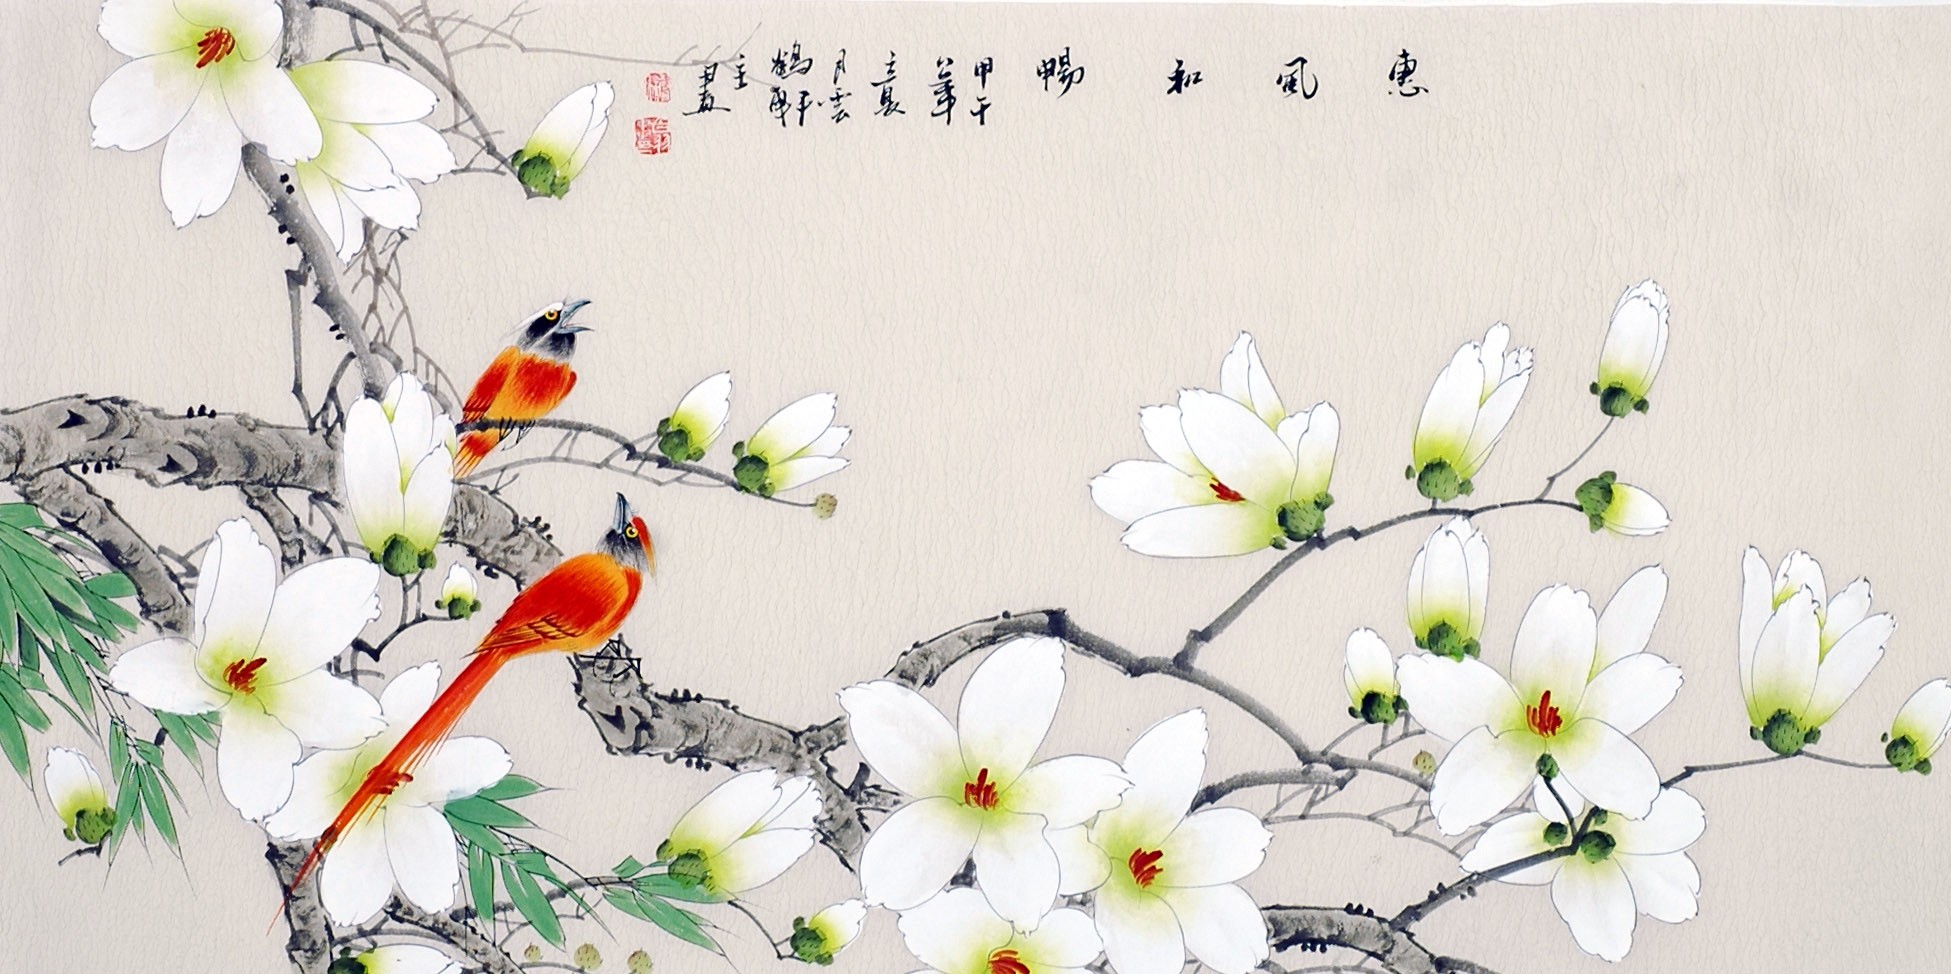 惠風和暢
甲午
年
立夏
月雲
鶴軒
主
畫